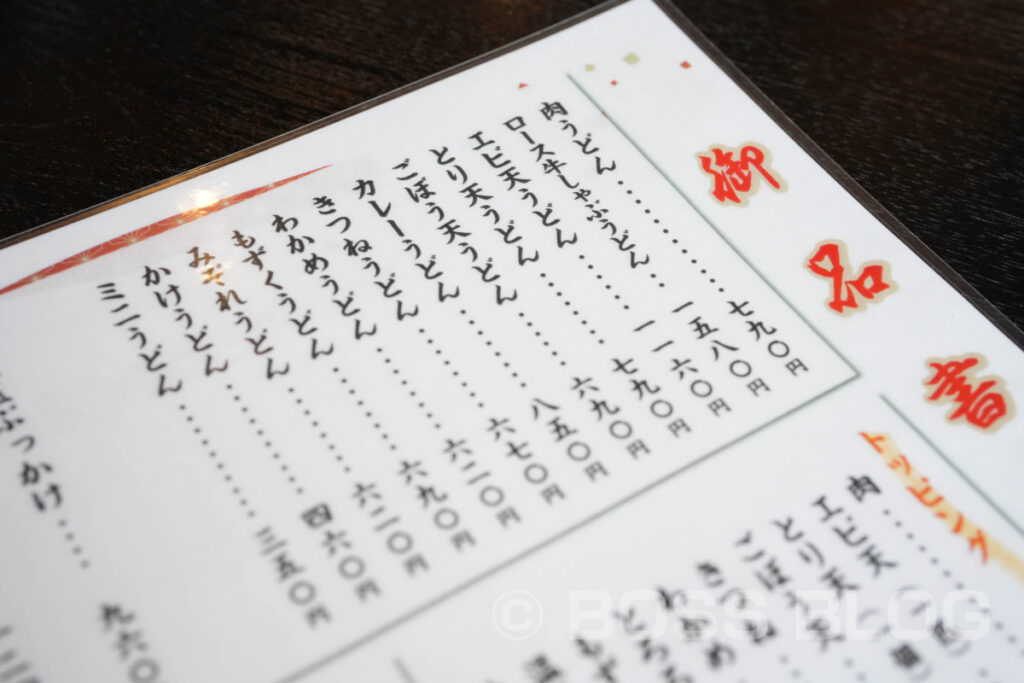 御名書
肉うどん…………七九〇円
ロース牛しゃぶうどん…一五八〇円
エビ天うどん…………一一六〇円
とり天うどん…………七九〇円
ごぼう天うどん…………六九〇円
カレーうどん…………八五〇円
きつねうどん…………六七〇円
わかめうどん…………六二〇円
もずくうどん…………六九〇円
みぞれうどん…………六二〇円
かけうどん…………四六〇円
ミニうどん…………三五〇円
ぶっかけ……九六〇
トッピング
肉……
エビ天（一匹）
とり天（一個）
ごぼう天
きつね
わかめ
とろろ
もず
温
© BOSS BLOG